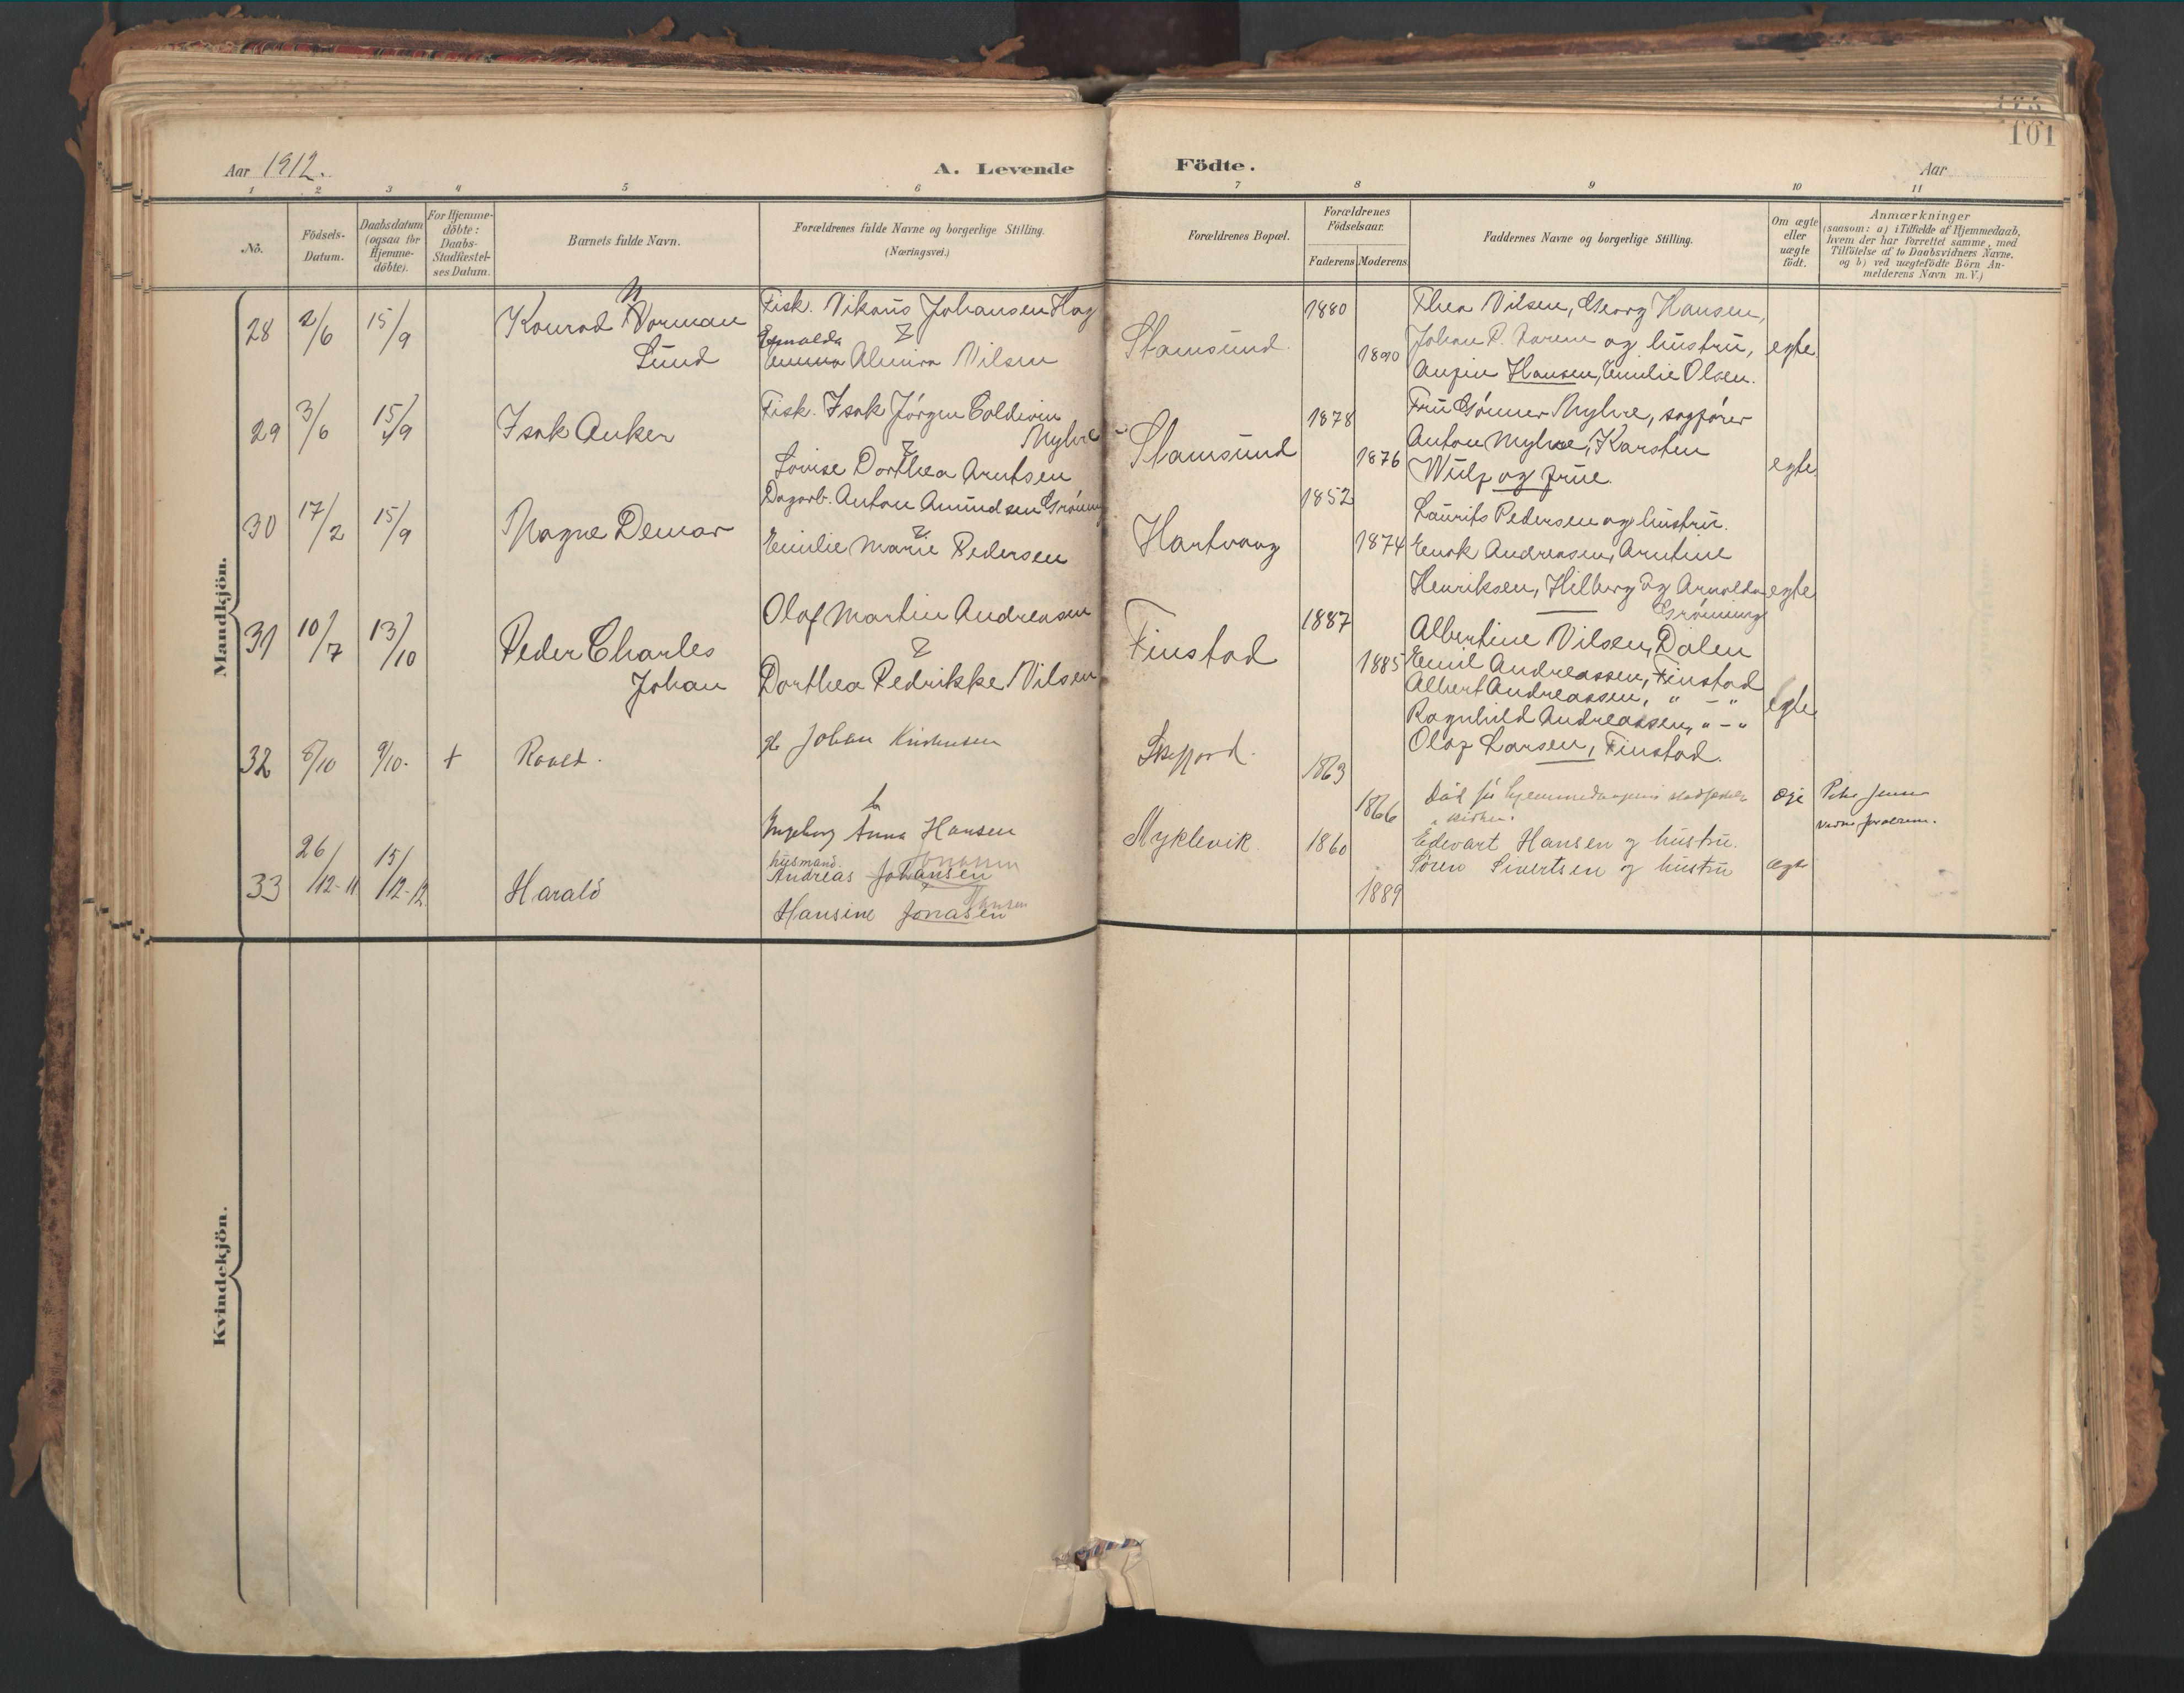 101
Aar 1912.
A. Levende
Födte.
Aar
1 2 3 4 5 6 7 8 9 10 11
Nö.
Födsels-
Datum.
Daabsdatum
(ogsaa for
Hjemme-
döbte).
For Hjemme-
döbte:
Daabs-
Stadfæstel-
ses Datum.
Barnets fulde Navn.
Forældrenes fulde Navne og borgerlige Stilling.
(Næringsvei.)
Forældrenes Bopæl.
Forældrenes
Födselsaar.
Faderens Moderens
Faddernes Navne og borgerlige Stilling.
Om ægte
eller
uægte
födt.
Anmærkninger
(saasom: a) i Tilfælde af Hjemmedaab,
hvem der har forrettet samme, med
Tilföielse af to Daabsvidners Navne.
og b) ved uægtefödte Börn An-
melderens Navn m. V.)
Mandkjön.
28
2/6
15/9
Konrad Norman
Lund
Fisk. Nikaus Johansen Hag
Esmalda
Almira Nilsen
Stamsund.
1880
1890
Thea Nilsen, Georg Hansen,
Johan P. Larsen og hustru,
Hansen, Emilie Olsen.
egte
29
3/6
15/9
Isak Anker
Fisk. Isak Jörgen Coldevin
Myhre
&
Lovise Dorthea Arntsen
Stamsund
1878
1876
Fru Gunner Myhre, sagförer
Anton Myhre, Karsten
Wulf og frue.
egte
30
17/2
15/9
Magne Demar
Dagarb. Anton Amundsen Gröning
&
Emilie Marie Pedersen
Hartvaag
1852
1874
Laurits Pedersen og hustru.
Enok Andreasen, Arntine
Henriksen, Hilberg og Arnolda
Gröning
egte
31
10/7
13/10
Peder Charles
Johan
Olaf Martin Andreasen
&
Dorthea Pedrikke Nilsen
Finstad
1887
1885
Albertine Nilsen, Dalen
Emil Andreassen, Finstad
Albert Andreassen, " - "
Ragnhild Andreassen, " - "
Olaf Larsen, Finstad.
egte
32
8/10
9/10.
+
Johan Kristensen
Ingeborg Anna Hansen
1863
1866
Död för
Peter Jensen
33
26/12-11
15/12-12
Harald
husmand.
Andreas Johansen
Jonassen
Hansine Jonasen
Hansen
Myklevik
1860
1889
Edvart Hansen og hustru.
Sören Sivertsen og hustru
ægte
Kvindekjön.